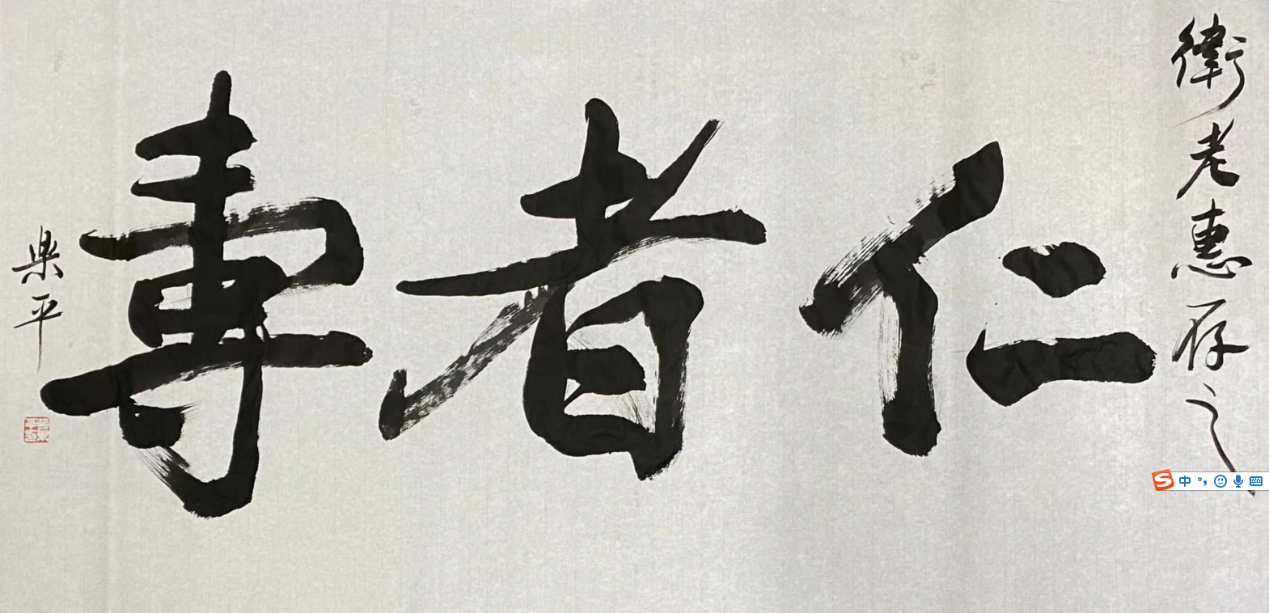 衛老惠存之
仁者壽
樂平
中